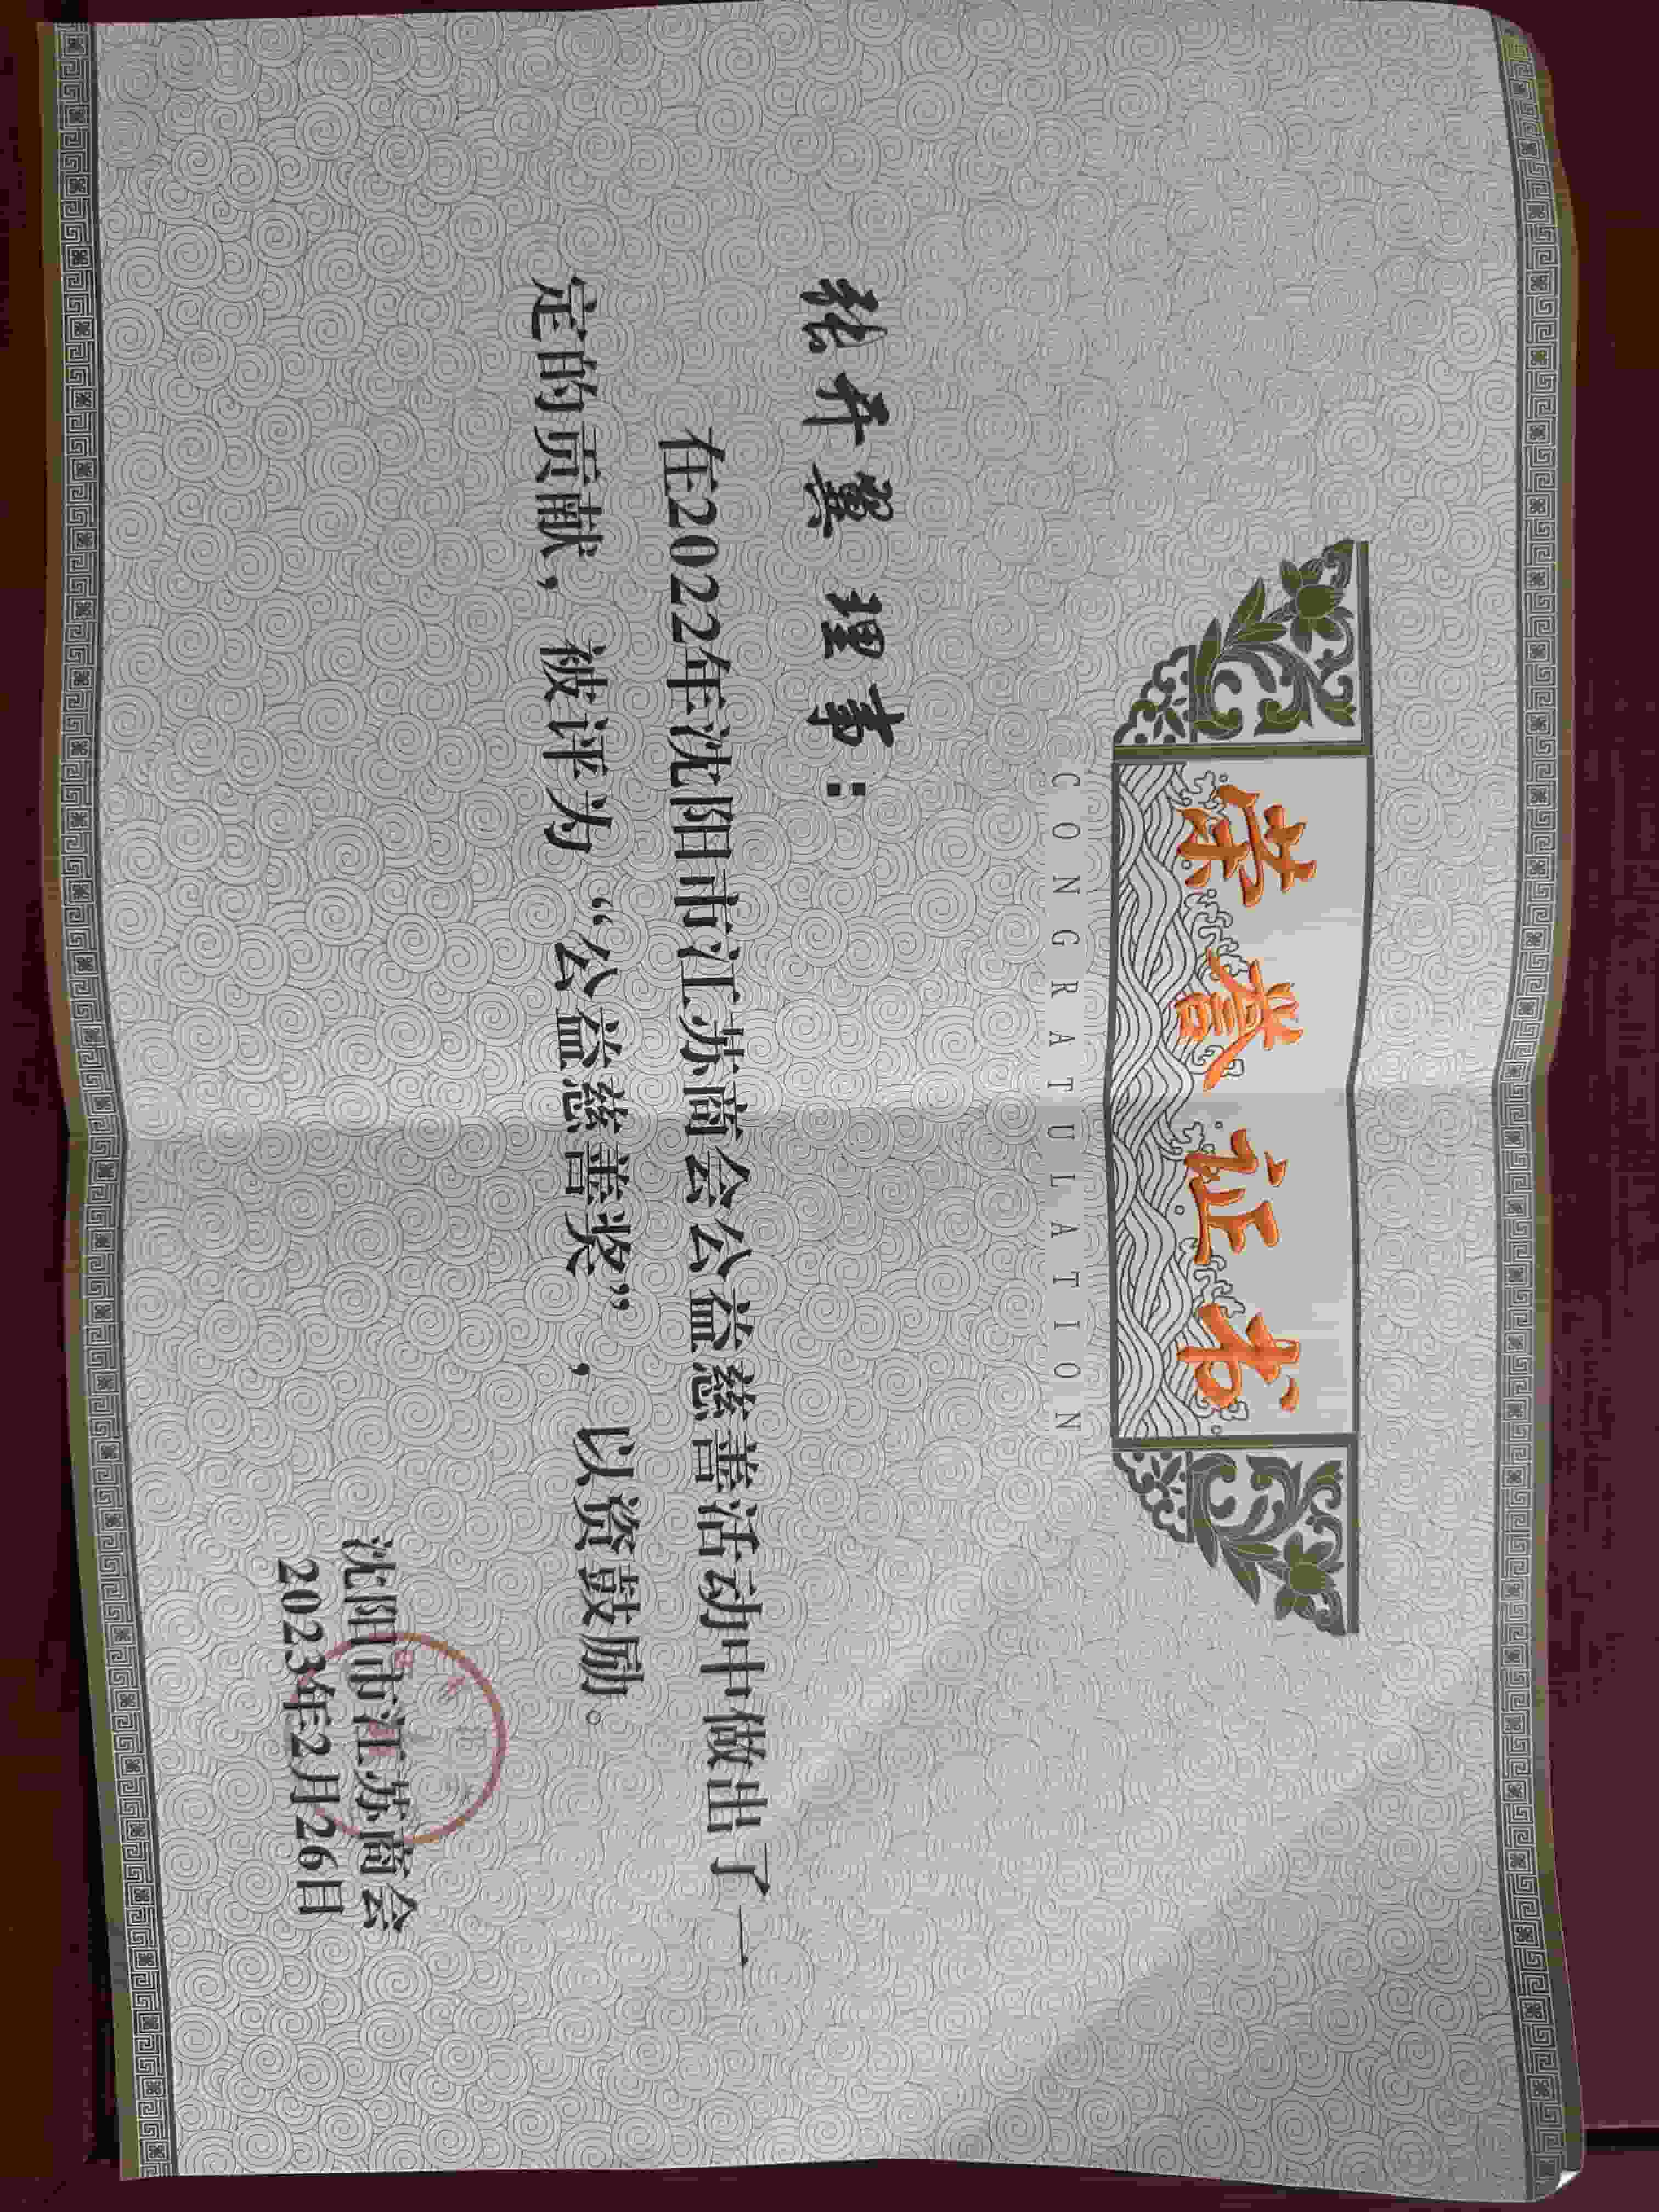 荣誉证书
CONGRATULATION
张升翼 理事：
在2022年沈阳市江苏商会公益慈善活动中做出了一
定的贡献，被评为“公益慈善奖”，以资鼓励。
沈阳市江苏商会
2023年2月26日